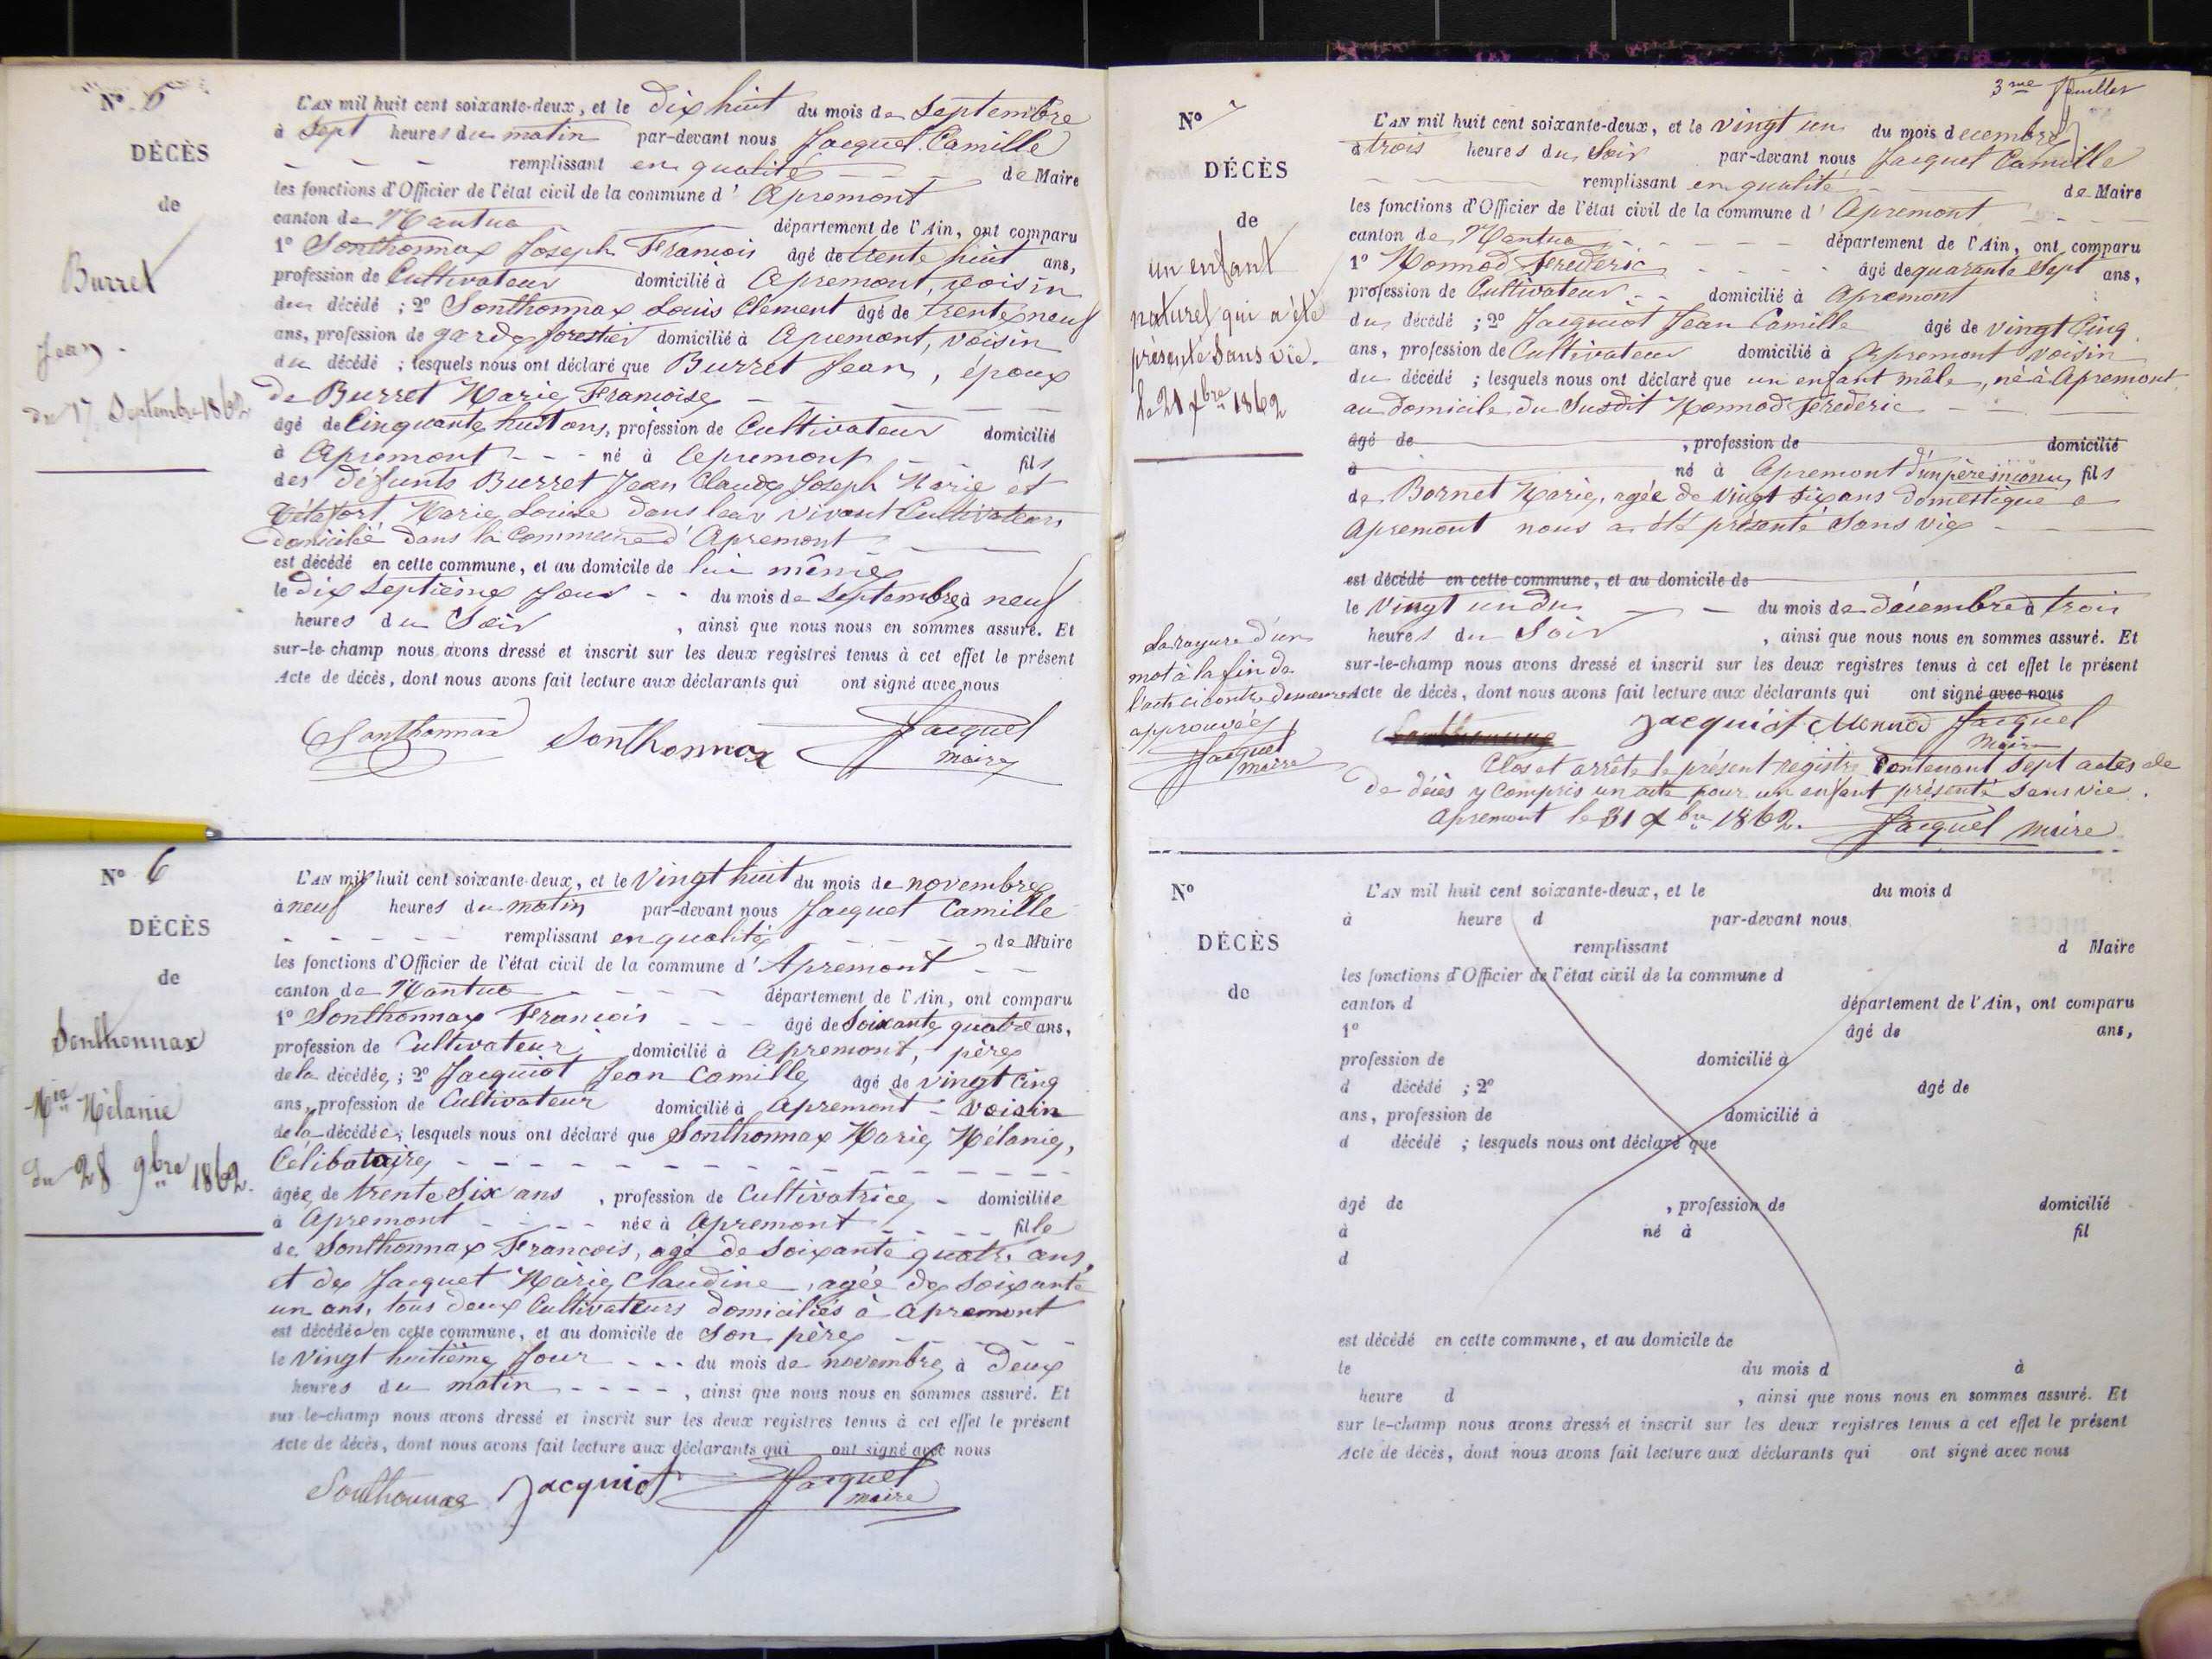 N° 5
DÉCÈS
de
Burret
Jean
du 17 Septembre 1862
L'AN mil huit cent soixante-deux, et le dix huit du mois de Septembre
à Sept heures du matin par-devant nous Jacquet Camille
remplissant en qualité de Maire
les fonctions d'Officier de l'état civil de la commune d' Apremont
canton de Nantua département de l'Ain, ont comparu
1° Sonthonnax Joseph Francois âgé de trente huit ans,
profession de Cultivateur domicilié à Apremont, voisin
du décédé ; 2° Sonthonnax Louis Clement âgé de trente neuf
ans, profession de garde forestier domicilié à Apremont, voisin
du décédé ; lesquels nous ont déclaré que Burret Jean, époux
de Burret Marie Francoise
âgé de Cinquante huit ans, profession de Cultivateur domicilié
à Apremont né à Apremont fils
des défunts Burret Jean Claude Joseph Marie et
Marie Louise dans leur vivant Cultivateurs
domicilié dans la Commune d'Apremont
est décédé en cette commune, et au domicile de lui même
le dix Septième Jour du mois de Septembre à neuf
heures du Soir, ainsi que nous nous en sommes assuré. Et
sur-le-champ nous avons dressé et inscrit sur les deux registres tenus à cet effet le présent
Acte de décès, dont nous avons fait lecture aux déclarants qui ont signé avec nous
Sonthonnax Sonthonnax Jacquet
maire
N° 6
DÉCÈS
de
Sonthonnax
Mie Mélanie
du 28 9bre 1862.
L'AN mil huit cent soixante-deux, et le Vingt huit du mois de novembre
à neuf heures du matin par-devant nous Jacquet Camille
remplissant en qualité de Maire
les fonctions d'Officier de l'état civil de la commune d' Apremont
canton de Nantua département de l'Ain, ont comparu
1° Sonthonnax Francois âgé de Soixante quatre ans,
profession de Cultivateur domicilié à Apremont, père
de la décédée ; 2° Jacquiot Jean Camille âgé de vingt Cinq
ans, profession de Cultivateur domicilié à Apremont - voisin
de la décédée ; lesquels nous ont déclaré que Sonthonnax Marie Mélanie,
Célibataire,
âgée de trente Six ans, profession de Cultivatrice domiciliée
à Apremont née à Apremont fille
de Sonthonnax Francois, agé de Soixante quatre ans,
et de Jacquet Marie Claudine, agée de Soixante
un ans, tous deux Cultivateurs domiciliés à Apremont
est décédée en cette commune, et au domicile de Son père
le Vingt huitième Jour du mois de novembre à Deux
heures du matin, ainsi que nous nous en sommes assuré. Et
sur-le-champ nous avons dressé et inscrit sur les deux registres tenus à cet effet le présent
Acte de décès, dont nous avons fait lecture aux déclarants qui ont signé avec nous
Sonthonnax Jacquiot Jacquet
maire
3me feuillet
N° 7
DÉCÈS
de
un enfant
naturel qui a été
présenté Sans vie.
le 21 Xbre 1862
L'AN mil huit cent soixante-deux, et le vingt un du mois decembre
à trois heures du Soir par-devant nous Jacquet Camille
remplissant en qualité de Maire
les fonctions d'Officier de l'état civil de la commune d' Apremont
canton de Nantua département de l'Ain, ont comparu
1° Monnod Frederic âgé de quarante Sept ans,
profession de Cultivateur domicilié à Apremont
du décédé ; 2° Jacquiot Jean Camille âgé de vingt Cinq
ans, profession de Cultivateur domicilié à Apremont voisin
du décédé ; lesquels nous ont déclaré que un enfant mâle, né à Apremont
au domicile du Susdit Monnod Frederic
âgé de , profession de domicilié
à né à Apremont d'un père inconnu, fils
de Bornet Marie, agée de vingt Six ans domestique a
Apremont nous a été présenté Sans vie
est décédé en cette commune, et au domicile de
le Vingt un du du mois de décembre à trois
heures du Soir, ainsi que nous nous en sommes assuré. Et
sur-le-champ nous avons dressé et inscrit sur les deux registres tenus à cet effet le présent
Acte de décès, dont nous avons fait lecture aux déclarants qui ont signé avec nous
La rayure d'un
mot à la fin de
l'acte ci contre demeure
approuvée
Jacquet
maire
Jacquiot Monnod Jacquet
Maire
Clos et arrêté le présent registre Contenant Sept actes de
de décès y Compris un acte pour un enfant présenté Sans vie.
Apremont le 31 Xbre 1862. Jacquet maire
N°
DÉCÈS
de
L'AN mil huit cent soixante-deux, et le du mois d
à heure d par-devant nous
remplissant d Maire
les fonctions d'Officier de l'état civil de la commune d
canton d département de l'Ain, ont comparu
1° âgé de ans,
profession de domicilié à
d décédé ; 2° âgé de
ans, profession de domicilié à
d décédé ; lesquels nous ont déclaré que
âgé de , profession de domicilié
à né à fil
d
est décédé en cette commune, et au domicile de
le du mois d à
heure d , ainsi que nous nous en sommes assuré. Et
sur le-champ nous avons dressé et inscrit sur les deux registres tenus à cet effet le présent
Acte de décès, dont nous avons fait lecture aux déclarants qui ont signé avec nous